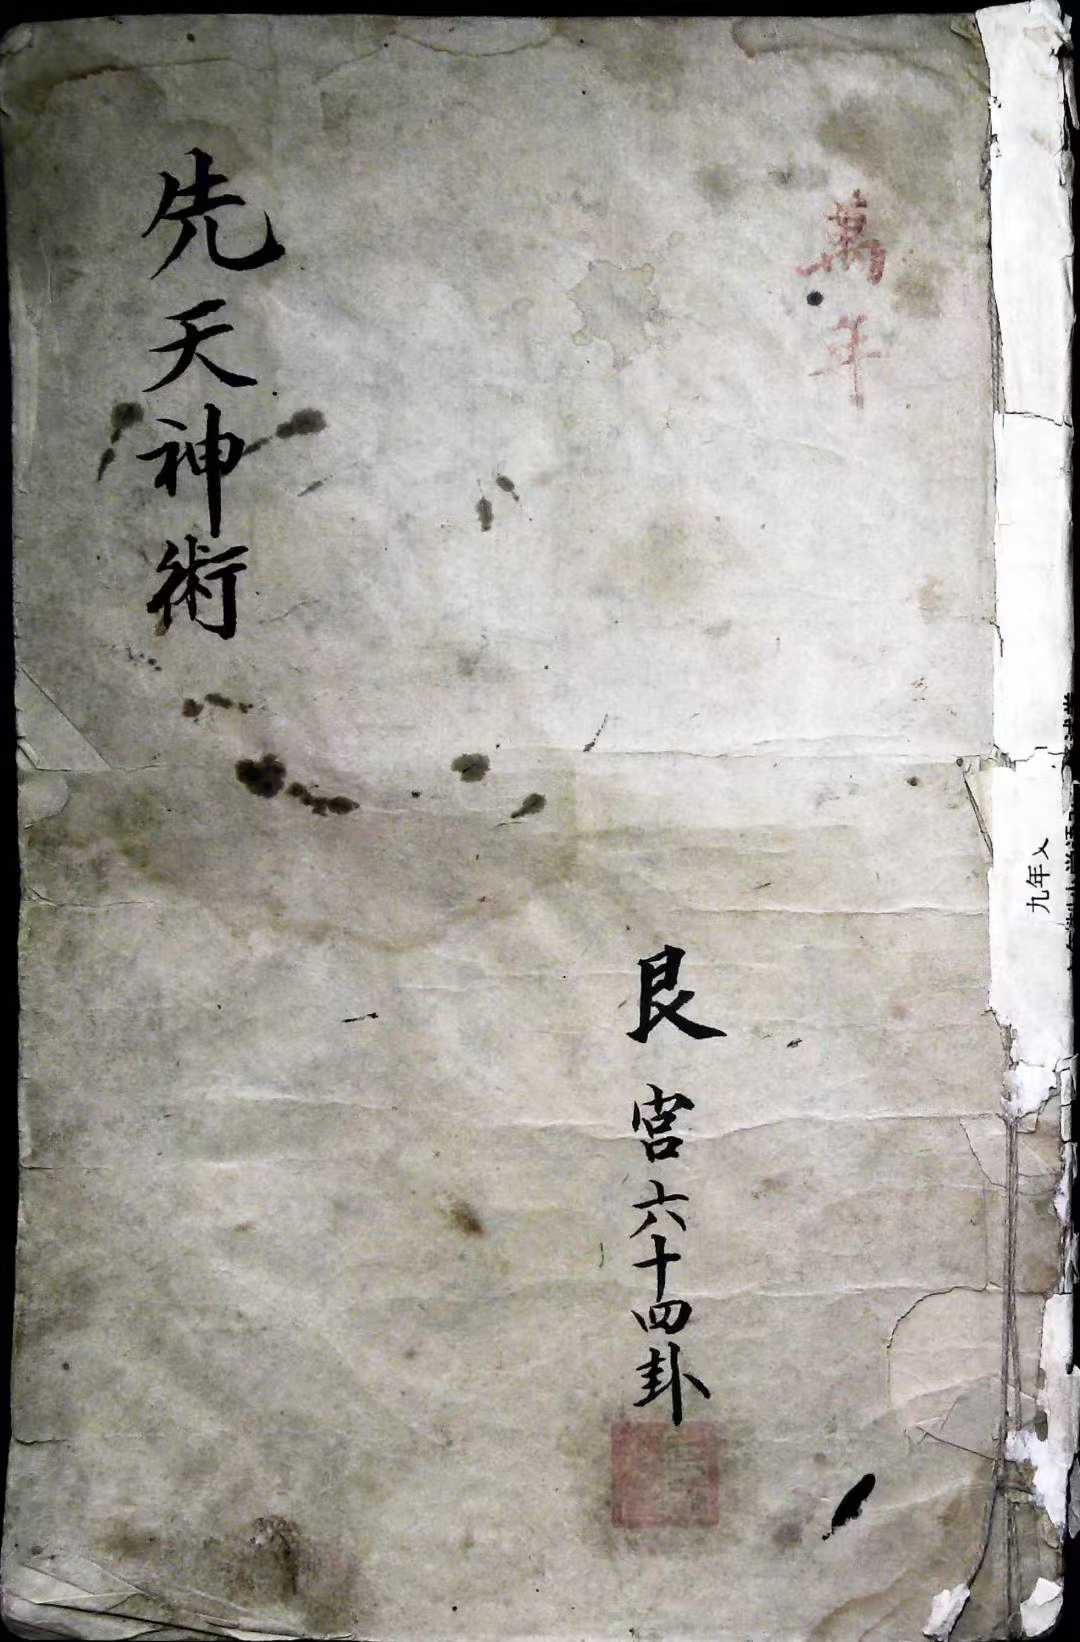 萬年
艮宮六十四卦
先天神術
九年